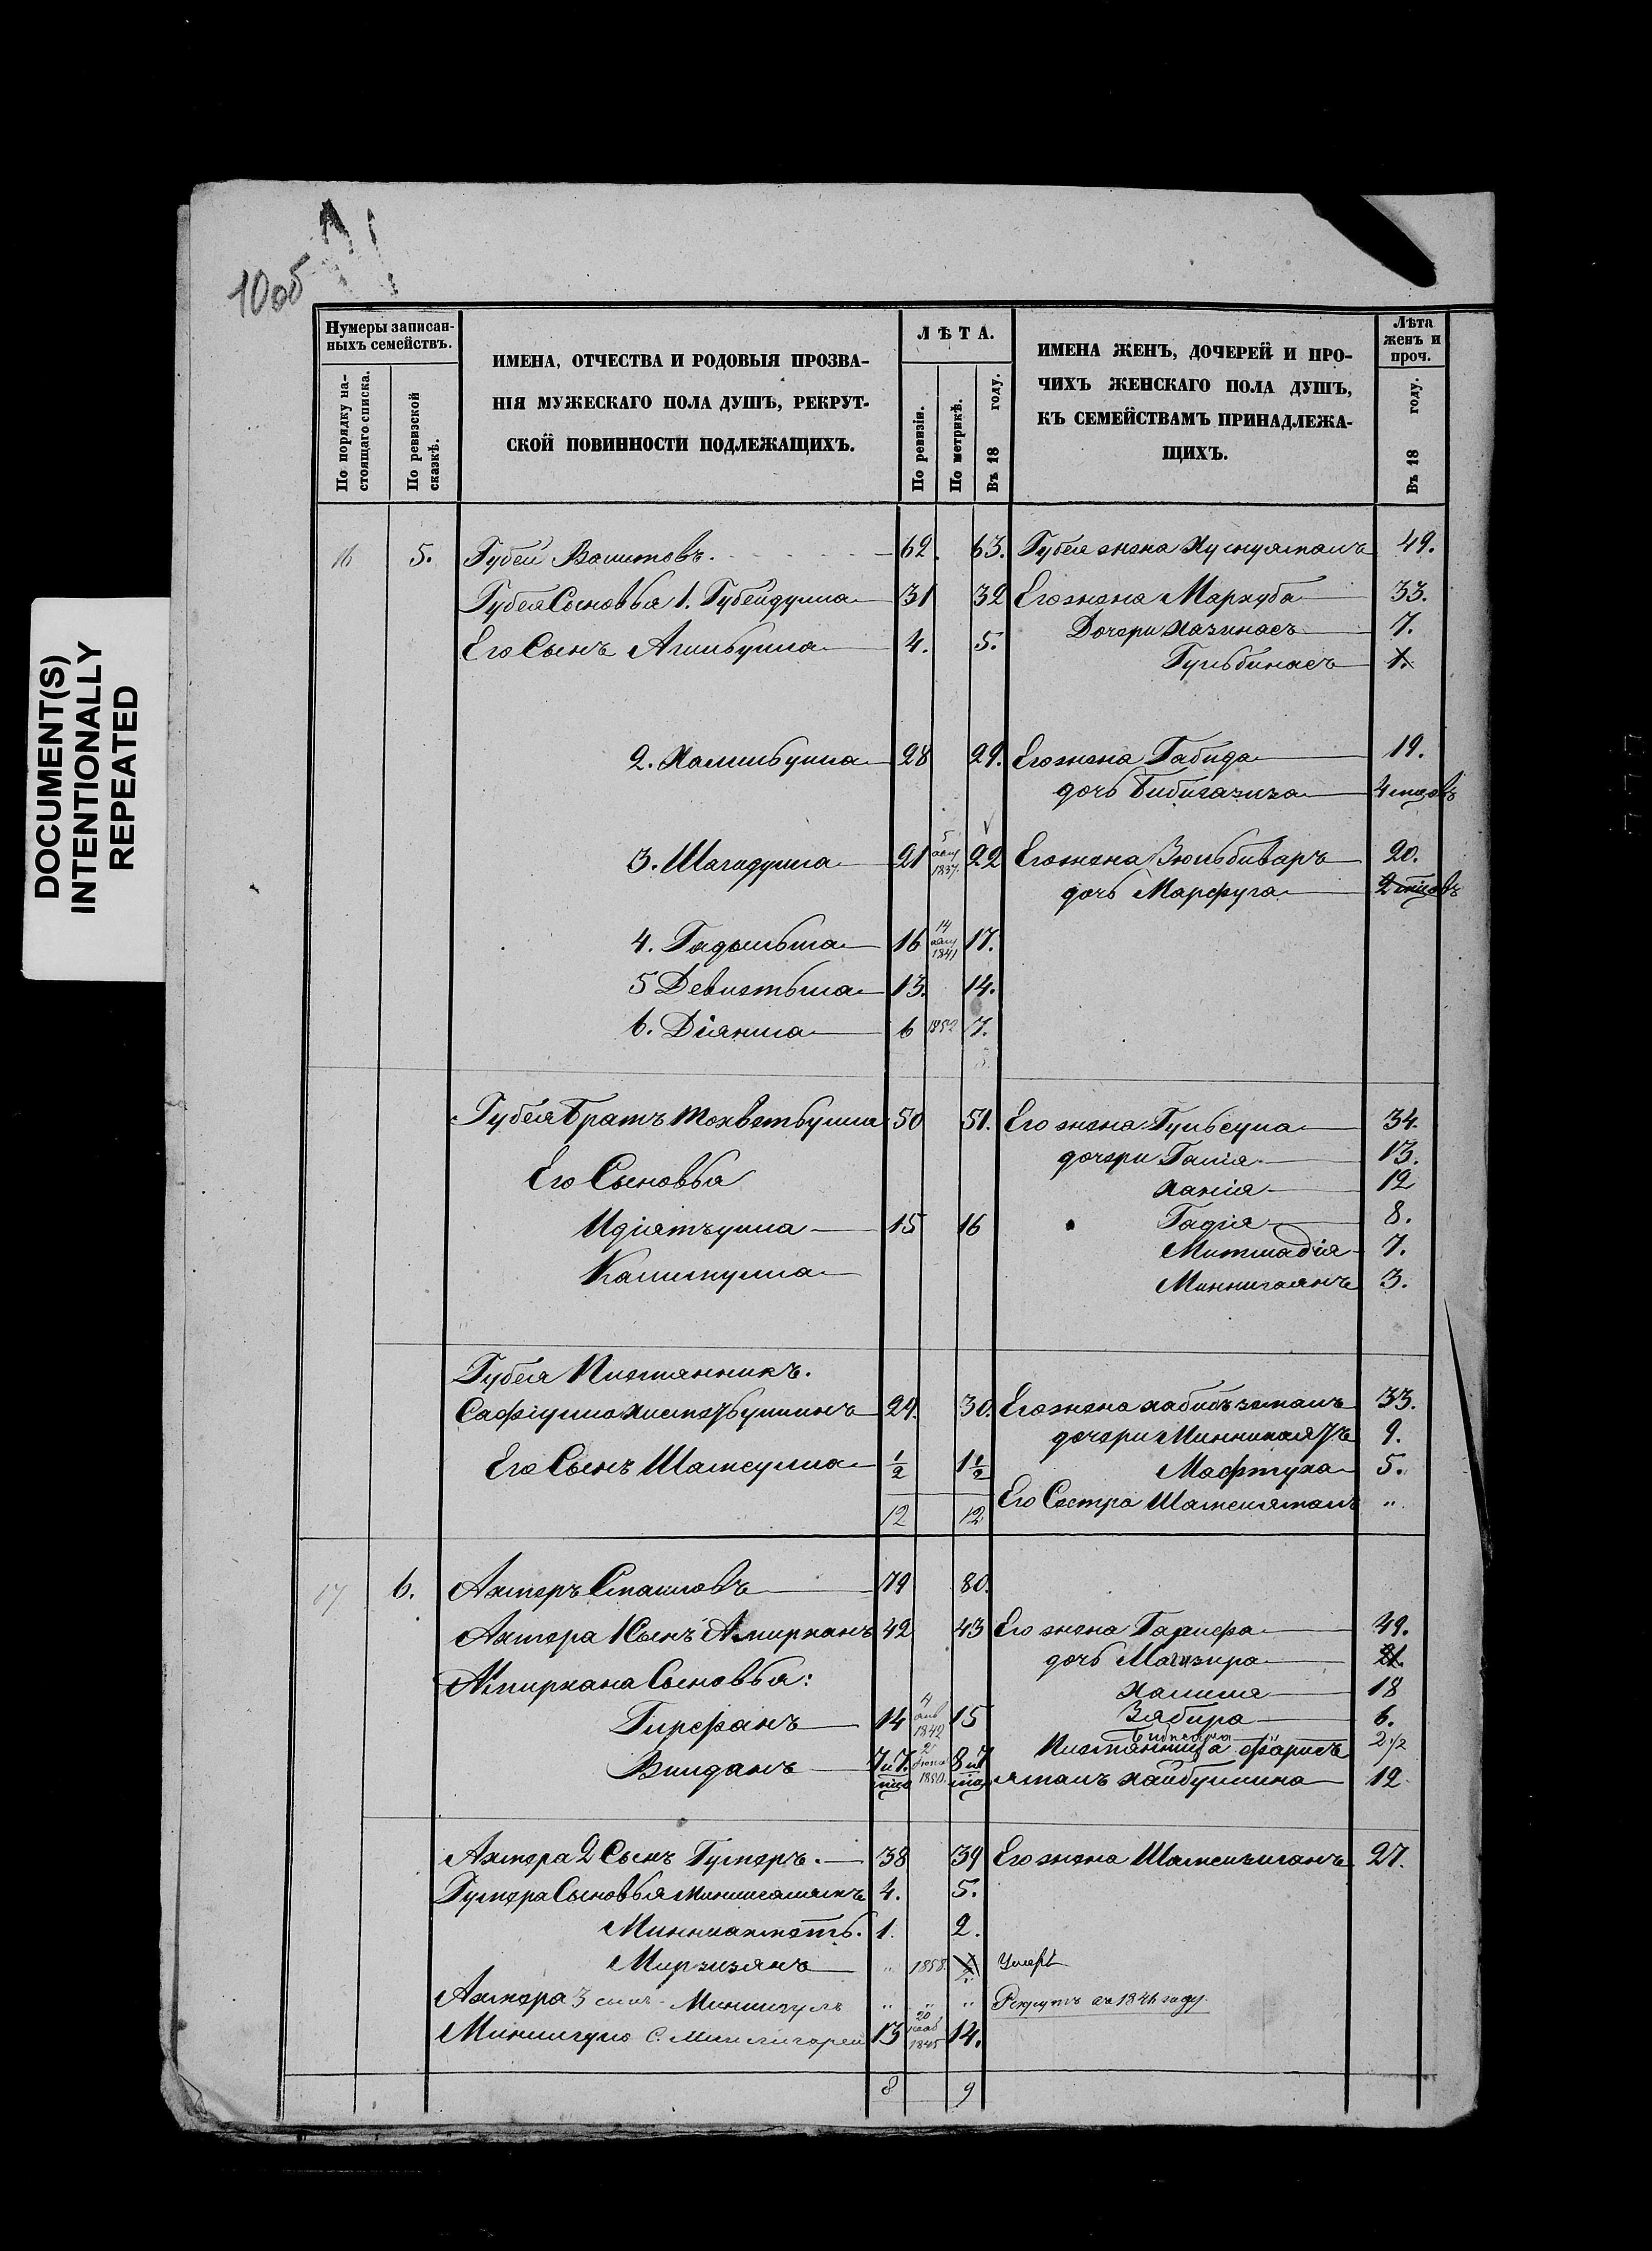 DOCUMENT(S)
INTENTIONALLY
REPEATED
10об
Нумеры записан-
ныхъ семействъ.
По порядку на-
стоящаго списка.
По ревизской
сказкѣ.
ИМЕНА, ОТЧЕСТВА И РОДОВЫЯ ПРОЗВА-
НІЯ МУЖЕСКАГО ПОЛА ДУШЪ, РЕКРУТ-
СКОЙ ПОВИННОСТИ ПОДЛЕЖАЩИХЪ.
ЛѢТА.
По ревизіи.
По метрикѣ.
Въ 18 году.
ИМЕНА ЖЕНЪ, ДОЧЕРЕЙ И ПРО-
ЧИХЪ ЖЕНСКАГО ПОЛА ДУШЪ,
КЪ СЕМЕЙСТВАМЪ ПРИНАДЛЕЖА-
ЩИХЪ.
Лѣта
женъ и
проч.
Въ 18 году.
16 5. Губей Вашитовъ. 62. 63. Губея жена 49.
Губея Сыновья 1. Губейдулла 31 32 Его жена Мархуба 33.
Дочери Назинасъ 7.
Его Сынъ 4. 5.
Гульбинасъ 1.
2. Халильулла 28 29. Его жена Габида 19.
дочь Бибигазиза 4 мѣсяцовъ
3. Шагидулла 21 5 авг 1837. 22 Его жена Зюльбиваръ 20.
дочь Марфуга 2 мѣсяцовъ
4. Гадыльша 16 14 1841 17.
5 Девлетьша 13. 14.
6. Діянша 6 1852 7.
Губея Братъ Мохветьулла 50 51. Его жена Гульсума 34.
дочери Галія 13.
Его Сыновья
Ханія 12
Идіятъулла 15 16 Гадія 8.
7.
Калимулла
Миннигаянъ 3.
Губея Племянникъ.
Сафіулла 29. 30. Его жена Хабибъземалъ 33.
дочери 9.
Его Сынъ Шамсулла 1/2 1 1/2 Мафтуха 5.
Его Сестра Шамсиямалъ "
12 12
17 6. Ахмеръ 79 80.
Ахмера 1 Сынъ Амирханъ 42 43 Его жена Гарифа 49.
дочь Магизира 21.
Амирхана Сыновья:
Халима 18
Гирфанъ 14 4 янв 1842 15 Зябира 6.
2 1/2
Вилданъ 7 и 7. мѣс 2 1850. 8 и 7 мѣс
Племянница Фариѳъ
ямалъ Хайбуллина 12
Ахмера 2 Сынъ Гумеръ. 38 39 Его жена 27.
Гумера Сыновья 4. 5.
Минниахметъ. 1. 2.
Мирзизянъ " 1858. Умеръ
Ахмера 3 сынъ Миннигулъ " " " Рекрутъ въ 1846 году.
Миннигула С. Миннигарей 13 20 1845 14.
8 9